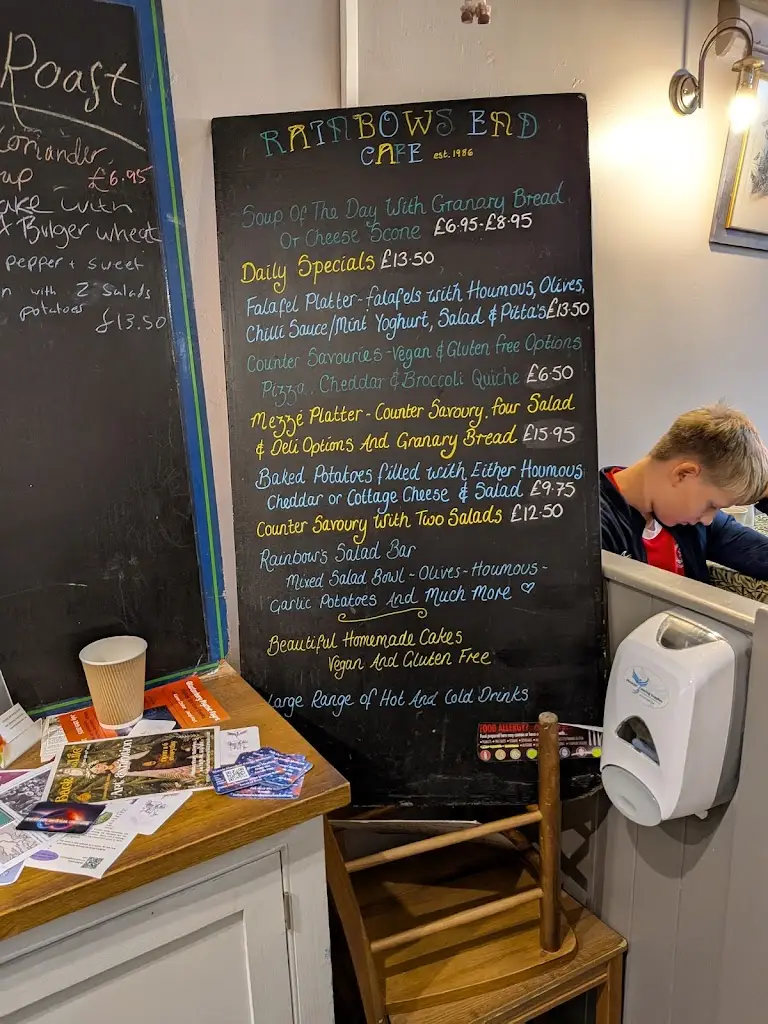 Roast
Coriander
£6.95
with
Bulger wheat
pepper + sweet
with 2 Salads
potatoes
£13.50
RAINBOWS END
CAFE est. 1986
Soup Of The Day With Granary Bread
Or Cheese Scone £6.95-£8.95
Daily Specials £13.50
Falafel Platter - falafels with Houmous, Olives,
Chilli Sauce/Mint Yoghurt, Salad & Pitta's £13.50
Counter Savouries - Vegan & Gluten free Options
Pizza, Cheddar & Broccoli Quiche £6.50
Mezzé Platter - Counter Savoury, four Salad
& Deli Options And Granary Bread £15.95
Baked Potatoes filled with Either Houmous
Cheddar or Cottage Cheese & Salad £9.75
Counter Savoury With Two Salads £12.50
Rainbow's Salad Bar
Mixed Salad Bowl - Olives - Houmous -
Garlic Potatoes And Much More ♡
Beautiful Homemade Cakes
Vegan And Gluten Free
Large Range of Hot And Cold Drinks
FOOD ALLERGY?